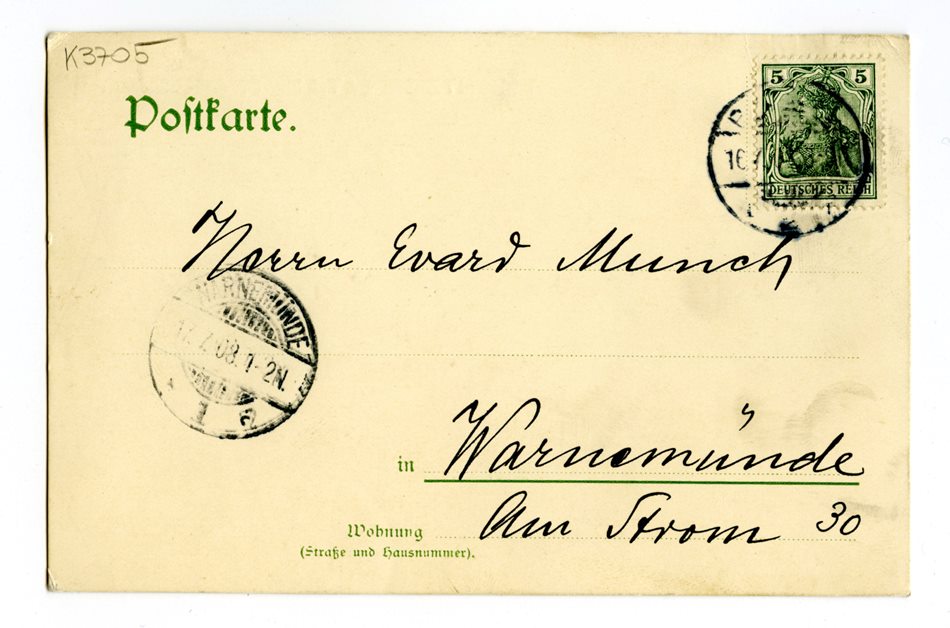 K3705
Postkarte.
5 5
DEUTSCHES REICH
16
Herrn Evard Munch
WARNEMÜNDE
17.7.08.1-2N.
1 a
in Warnemünde
Wohnung Am Strom 30
(Straße und Hausnummer).